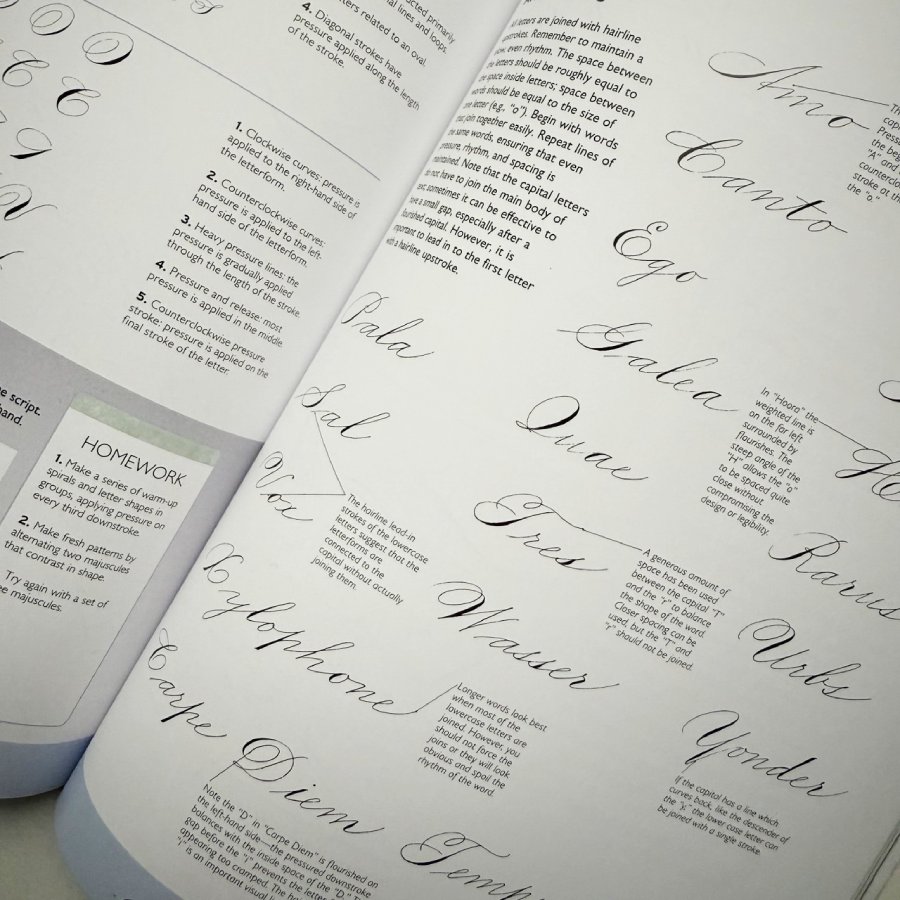 ucted primarily
al lines and loops.
ters related to an oval.
4. Diagonal strokes have
pressure applied along the length
of the stroke.
1. Clockwise curves: pressure is
applied to the right-hand side of
the letterform.
2. Counterclockwise curves:
pressure is applied to the left-
hand side of the letterform.
3. Heavy pressure lines: the
pressure is gradually applied
through the length of the stroke.
4. Pressure and release: most
pressure is applied in the middle.
5. Counterclockwise pressure
stroke: pressure is applied on the
final stroke of the letter.
e script.
hand.
HOMEWORK
1. Make a series of warm-up
spirals and letter shapes in
groups, applying pressure on
every third downstroke.
2. Make fresh patterns by
alternating two majuscules
that contrast in shape.
Try again with a set of
ee majuscules.
letters are joined with hairline
strokes. Remember to maintain a
slow, even rhythm. The space between
the letters should be roughly equal to
the space inside letters; space between
words should be equal to the size of
one letter (e.g, "o"). Begin with words
that join together easily. Repeat lines of
the same words, ensuring that even
pressure, rhythm, and spacing is
maintained. Note that the capital letters
do not have to join the main body of
text; sometimes it can be effective to
leave a small gap, especially after a
flourished capital. However, it is
important to lead in to the first letter
with a hairline upstroke.
Amo
Canto
Ego
Pala
Galea
Sal
Quae
Vox
Tres
Rarus
Xylophone
Wasser
Urbs
Carpe
Diem
Yonder
Temp
The
cap
Press
the beg
"A" and
countercloc
stroke at th
the "o."
In "Hoora" the
weighted line is
on the far left
surrounded by
flourishes. The
steep angle of the
"H" allows the "o"
to be spaced quite
close without
compromising the
design or legibility.
H
The hairline lead-in
strokes of the lowercase
letters suggest that the
letterforms are
connected to the
capital without actually
joining them.
A generous amount of
space has been used
between the capital "T"
and the "r" to balance
the shape of the word.
Closer spacing can be
used, but the "T" and
"r" should not be joined.
Longer words look best
when most of the
lowercase letters are
joined. However, you
should not force the
joins or they will look
obvious and spoil the
rhythm of the word.
If the capital has a line which
curves back, like the descender of
the "y," the lower case letter can
be joined with a single stroke.
Note the "D" in "Carpe Diem" is flourished on
the left-hand side—the pressured downstroke
balances with the inside space of the "D." T
gap before the "i" prevents the letter f
appearing too cramped. The ho
"i" is an important visual l